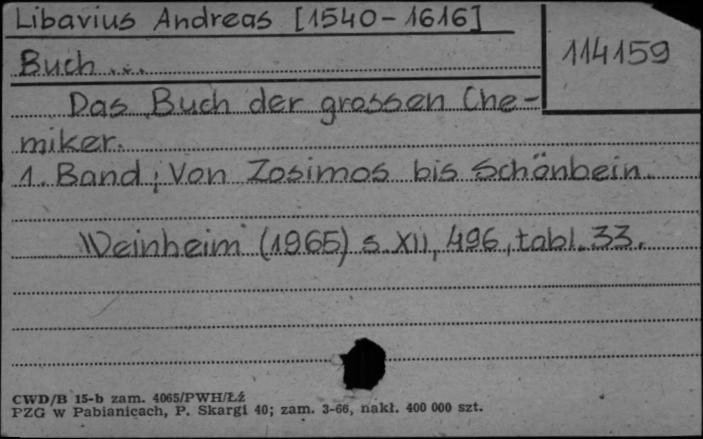 Libavius Andreas [1540-1616]
114159
Buch ...
Das Buch der grossen Che-
miker.
1. Band: Von Zosimos bis Schönbein.
Weinheim (1965) s. XII, 496, tabl. 33.
CWD/B 15-b zam. 4065/PWH/Łź
PZG w Pabianicach, P. Skargi 40; zam. 3-66, nakł. 400 000 szt.